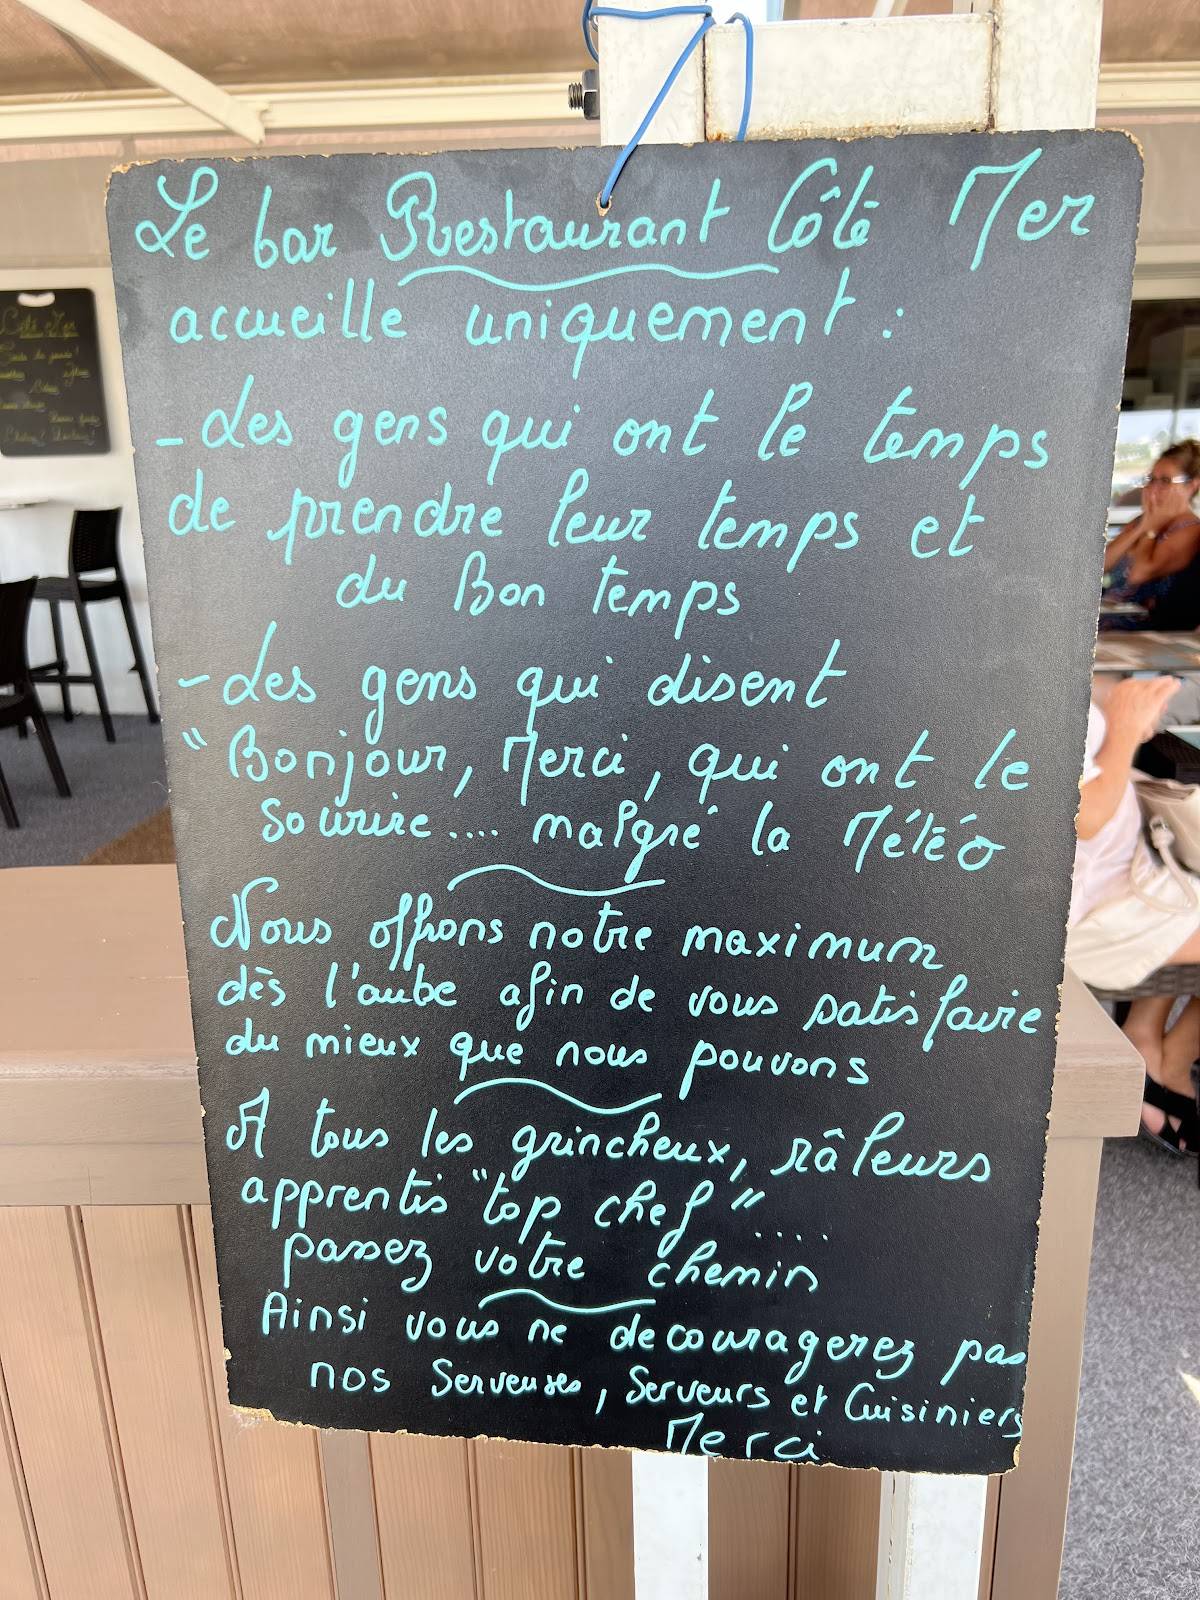 Le bar Restaurant Côté Mer
accueille uniquement :
- Les gens qui ont le temps
de prendre leur temps et
du Bon temps
- Les gens qui disent
"Bonjour, Merci, qui ont le
sourire.... malgré la Météo
Nous offrons notre maximum
dès l'aube afin de vous satisfaire
du mieux que nous pouvons
A tous les grincheux, râleurs
apprentis "top chef"....
passez votre chemin
Ainsi vous ne decouragerez pas
nos Serveuses, Serveurs et Cuisiniers
Merci
Côté Mer